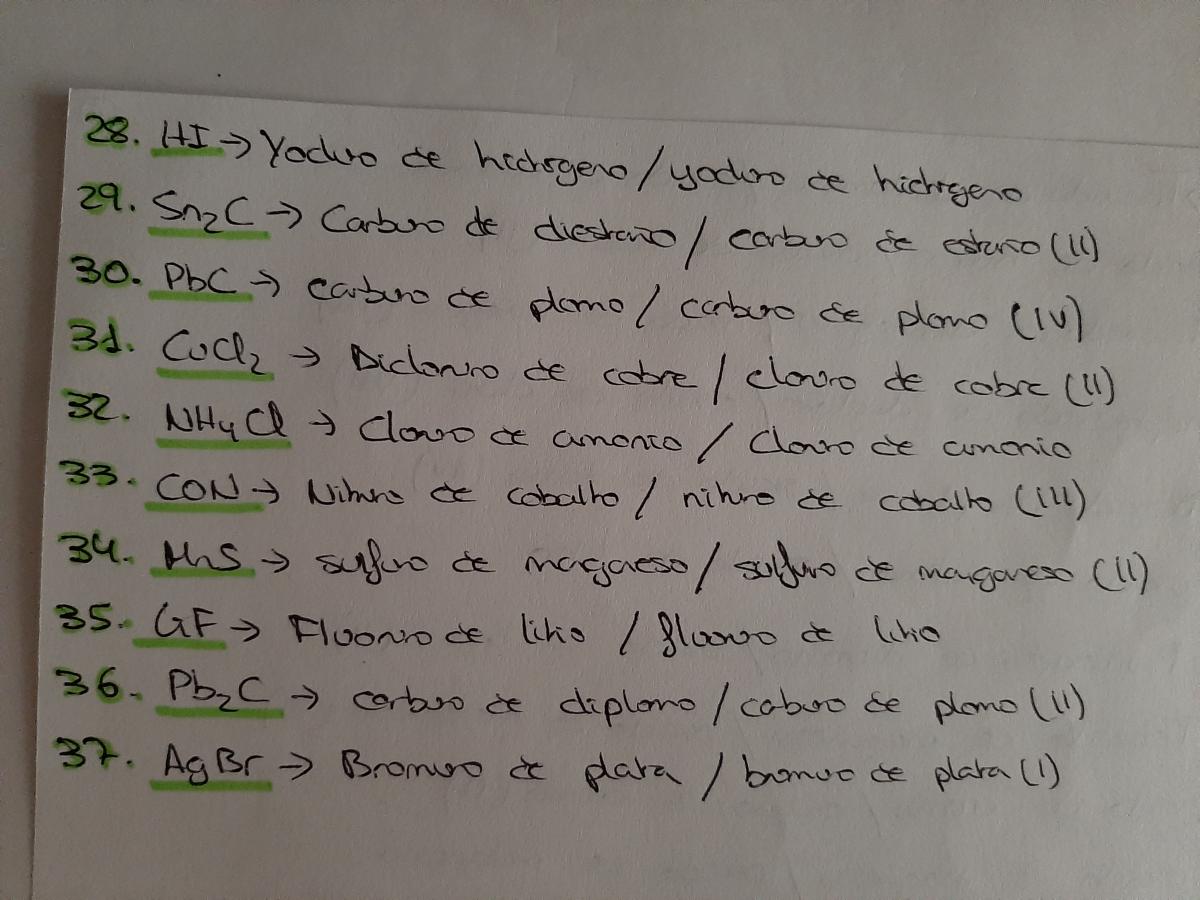 28. HI → Yoduro de hidrógeno / yoduro de hidrógeno
29. Sn₂C → Carburo de diestaño / carburo de estaño (II)
30. PbC → carburo de plomo / carburo de plomo (IV)
31. CuCl₂ → Dicloruro de cobre / cloruro de cobre (II)
32. NH₄Cl → Cloruro de amonio / Cloruro de amonio
33. CON → Nitruro de cobalto / nitruro de cobalto (III)
34. MnS → sulfuro de magaeso / sulfuro de manganeso (II)
35. LiF → Fluoruro de litio / fluoruro de litio
36. Pb₂C → carburo de diplomo / caburo de plomo (II)
37. AgBr → Bromuro de plata / bromuro de plata (I)